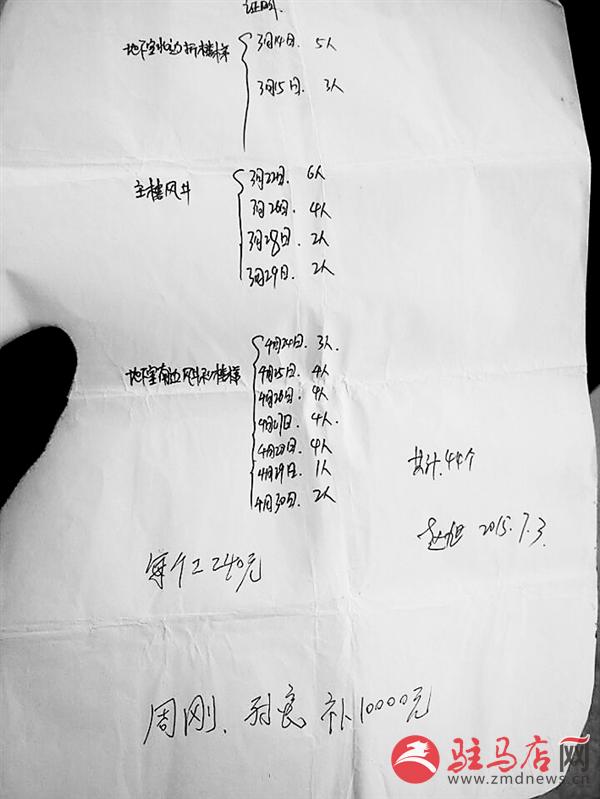 证明
地下室北边拆楼梯 3月14日. 5人
3月15日. 3人
主楼风井 3月22日. 6人
3月26日. 4人
3月28日. 2人
3月29日. 2人
地下室南边风井和楼梯 4月24日. 3人.
4月25日. 4人
4月26日. 4人
4月27日. 4人.
4月28日. 4人
4月29日. 1人
4月30日. 2人
共计.44个
2015.7.3.
每个工240元
周刚、 补10000元
驻马店网
www.zmdnews.cn